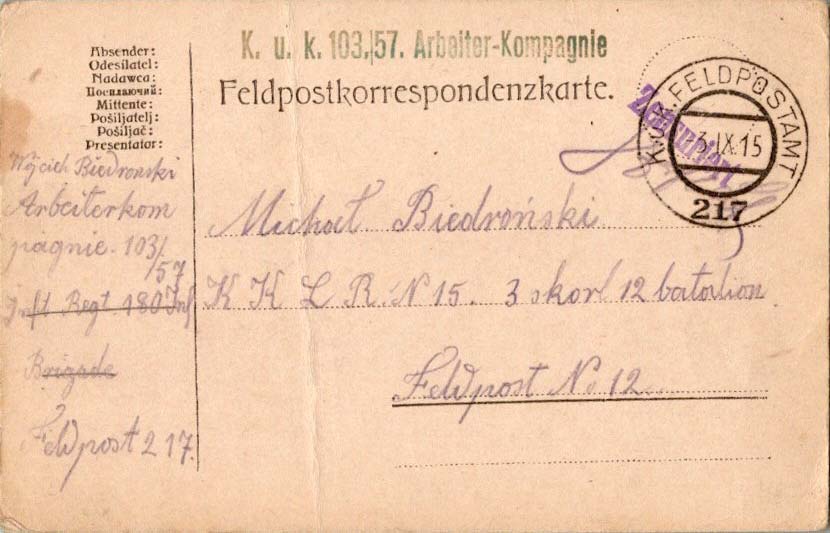 K. u. k. 103./57. Arbeiter-Kompagnie
Feldpostkorrespondenzkarte.
Absender:
Odesílatel:
Nadawca:
Посилаючий:
Mittente:
Pošiljatelj:
Pošiljač:
Presentator:
Wojciech Biedronski
Arbeiterkom
pagnie. 103/
57
Inft Regt. 180 Inf
Brigade
Feldpost 217.
Zensuriert
K.u.K. FELDPOSTAMT
-3.IX.15
217
Michał Biedroński
K K L R. N 15. 3 skorl 12 batalion
Feldpost No 12